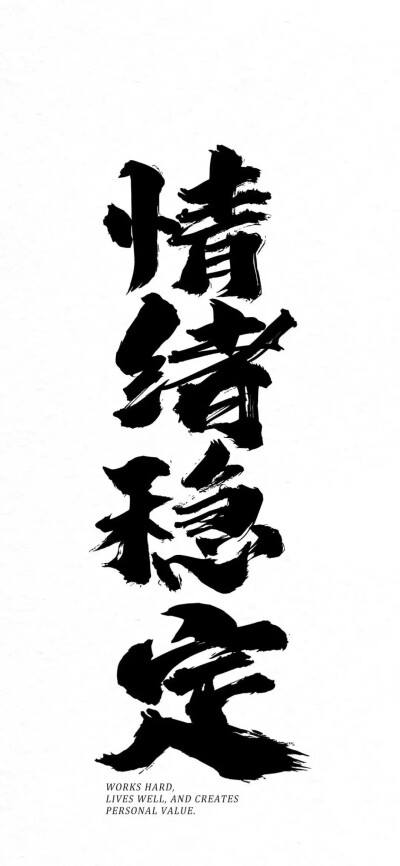 情绪稳定
WORKS HARD,
LIVES WELL, AND CREATES
PERSONAL VALUE.